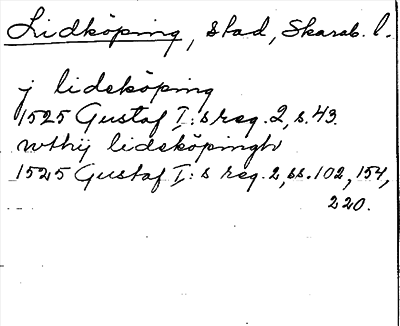 Lidköping, stad, Skarab. l.
j lidsköping
1525 Gustaf I:s reg. 2, s. 43.
wthij lidsköpingh
1525 Gustaf I:s reg. 2, ss. 102, 154,
220.